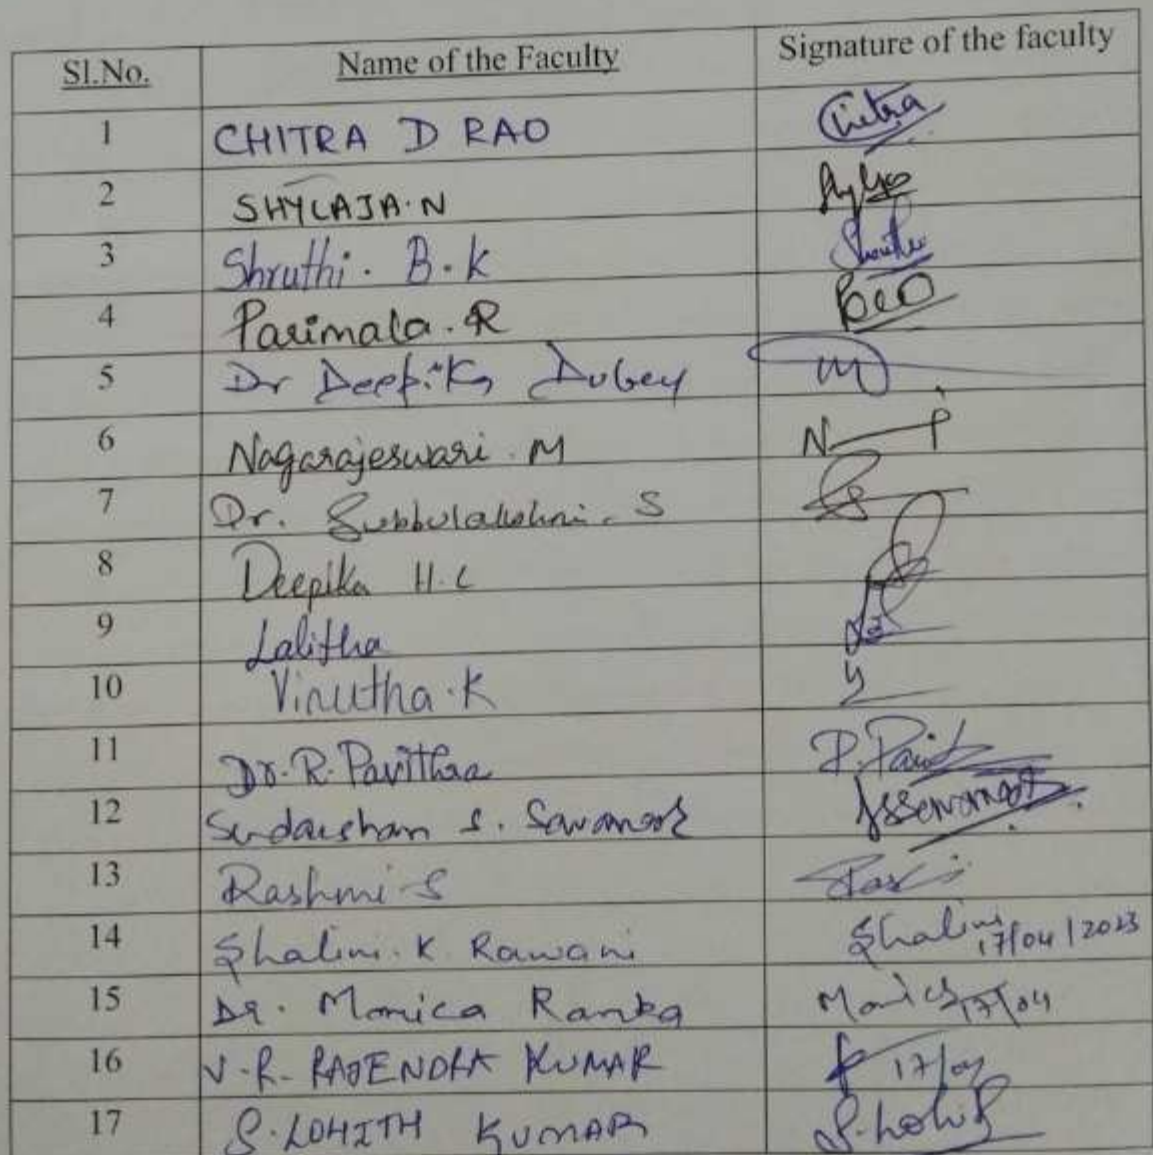 Sl.No. Name of the Faculty Signature of the faculty
1 CHITRA D RAO Chitra
2 SHYLAJA.N
3 Shruthi. B.K Shruthi
4 Parimala.R
5 Dr Deepika Dubey
6 Nagarajeswari. M
7 Dr. Subbulakshmi. S
8 Deepika H.C
9 Lalitha
10 Vinutha.K
11 Dr.R.Pavithra
12 Sudarshan S.
13 Rashmi S
14 Shalini.K Rawani Shalini 17/04/2023
15 Dr. Monica Ranka Monica 17/04
16 V.R. RAJENDRA KUMAR 17/04
17 S.LOHITH KUMAR S.Lohith